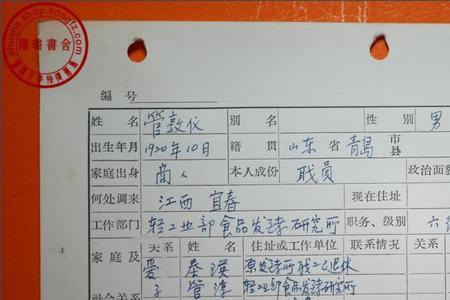 shushe.shop.kongfz.com
编号
姓名 管敦仪 别名 性别 男
出生年月 1920年10月 籍贯 山东省青島市县
家庭出身 商人 本人成份 職員 政治面
何处调来 江西 宜春 现在住址
工作部门 轻工业部食品发酵研究所 职务、级别 六
家庭及 关系 姓名 住址或工作单位 联系情况 关系
爱 秦瑛 原发酵所职工已退休
社会关系 子 管津 轻工业部食品发酵研究所